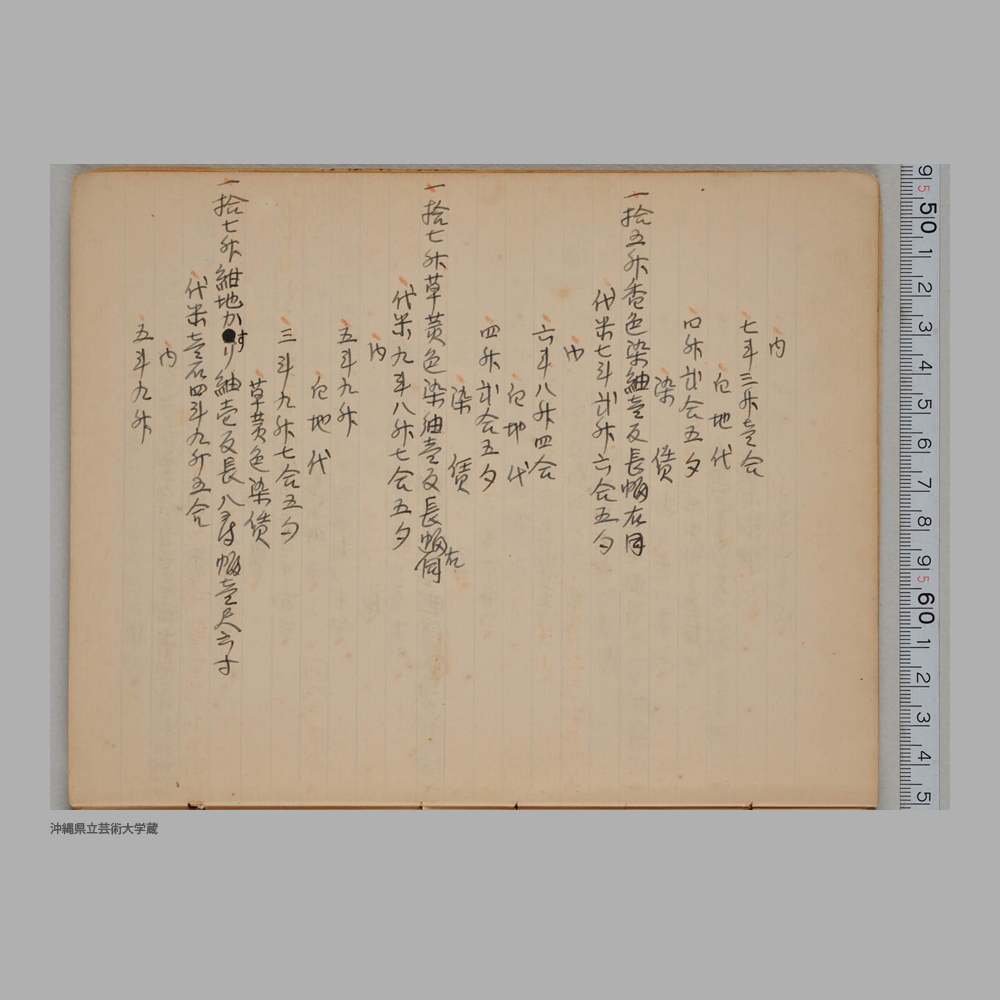 内
七斗三升壱合
白地代
四升弐合五夕
染賃
一拾五升香色染紬壱反長幅右同
代米七斗弐升六合五夕
内
六斗八升四合
白地代
四升弐合五夕
染賃
一拾七升草黄色染紬壱反長幅右同
代米九斗八升七合五夕
内
五斗九升
白地代
三斗九升七合五夕
草黄色染賃
一拾七升紺地かすり紬壱反長八尋幅壱尺六寸
代米壱石四斗九升五合
内
五斗九升
9 5 50 1 2 3 4 5 6 7 8 9 5 60 1 2 3 4 5
沖縄県立芸術大学蔵